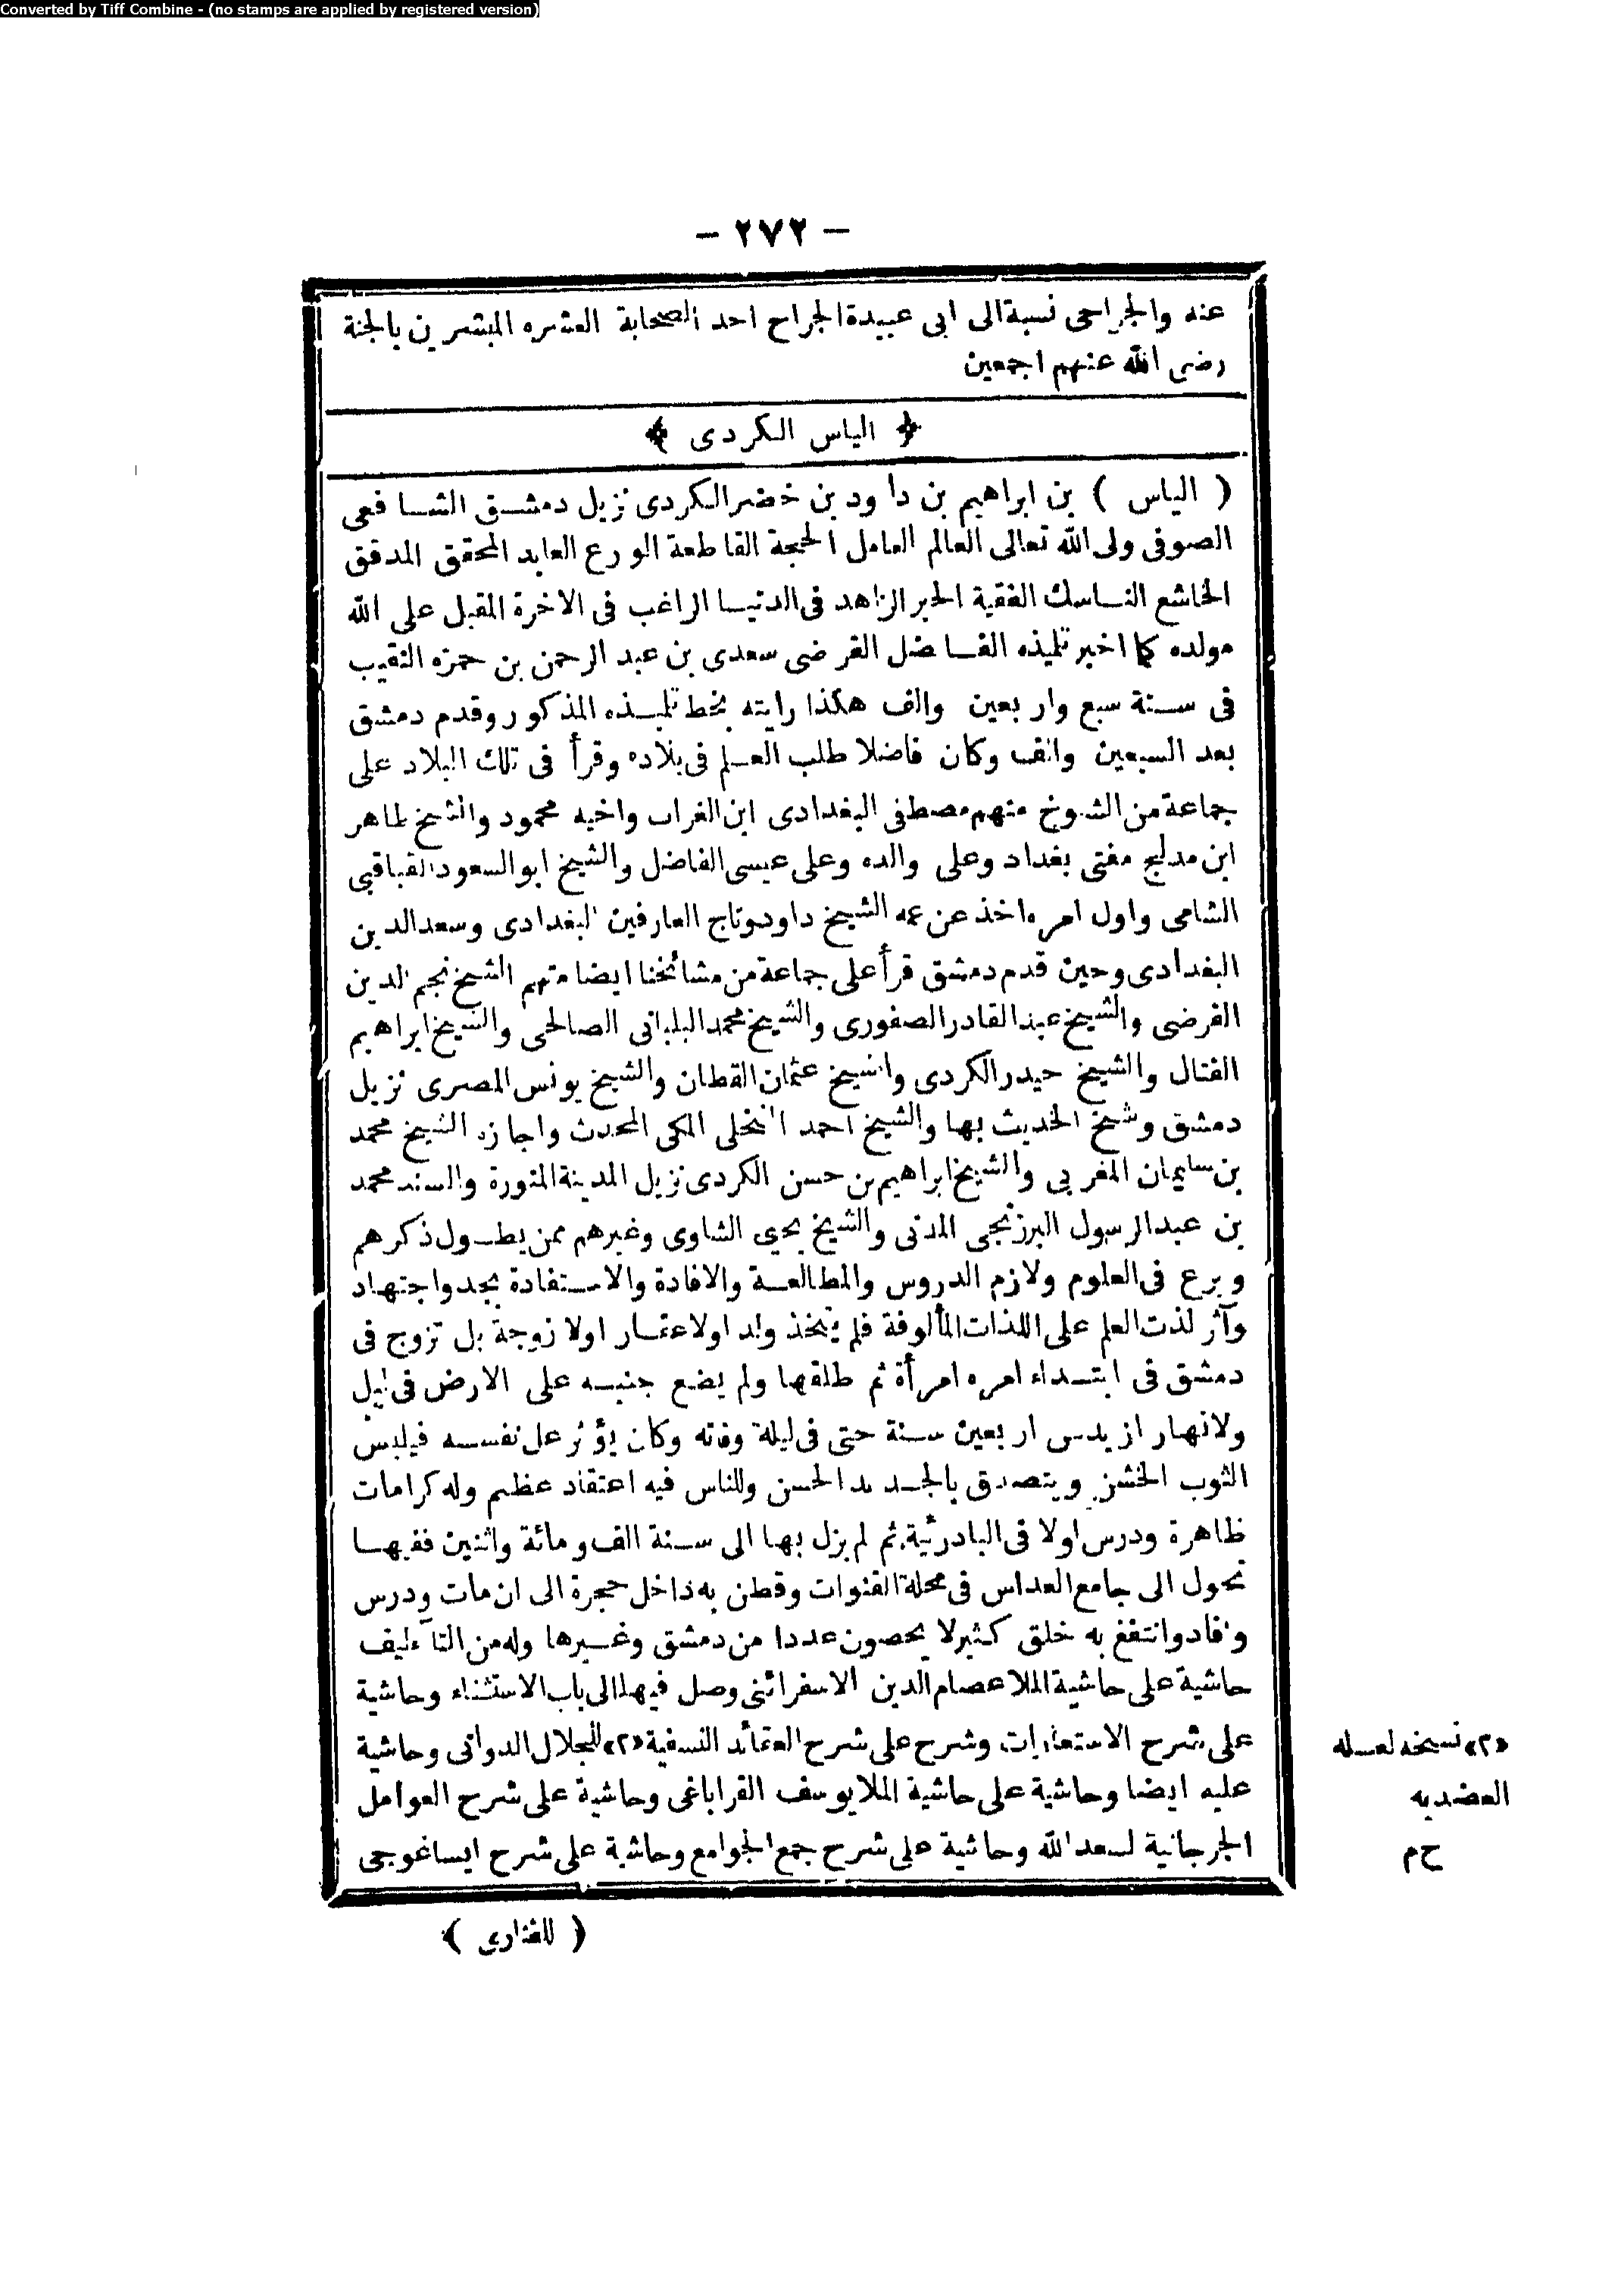 Converted by Tiff Combine - (no stamps are applied by registered version)
- ٢٧٢ -
عنه والجراحى نسبة الى ابى عبيدة الجراح احد الصحابة العشره المبشرين بالجنة
رضى الله عنهم اجمعين
﴿ الياس الكردى ﴾
( الياس ) بن ابراهيم بن داود بن خضر الكردى نزيل دمشق الشافعى
الصوفى ولى الله تعالى العالم العامل الحجة القاطعة الورع العابد المحقق المدقق
الخاشع الناسك الفقية الحبر الزاهد فى الدنيا الراغب فى الاخرة المقبل على الله
مولده كما اخبر تلميذه الفاضل الفرضى سعدى بن عبد الرحمن بن حمزه النقيب
فى سنة سبع واربعين والف هكذا رايته بخط تلميذه المذكور وقدم دمشق
بعد السبعين والف وكان فاضلا طلب العلم فى بلاده وقرأ فى تلك البلاد على
جماعة من الشيوخ منهم مصطفى البغدادى ابن الغراب واخيه محمود والشيخ طاهر
ابن مدلج مفتى بغداد وعلى والده وعلى عيسى الفاضل والشيخ ابو السعود القباقبى
الشامى واول امره اخذ عن عمه الشيخ داود وتاج العارفين البغدادى وسعد الدين
البغدادى وحين قدم دمشق قرأ على جماعة من مشائخنا ايضا منهم الشيخ نجم الدين
الفرضى والشيخ عبد القادر الصفورى والشيخ محمد البلبانى الصالحى والشيخ ابراهيم
الفتال والشيخ حيدر الكردى والشيخ عثمان القطان والشيخ يونس المصرى نزيل
دمشق وشيخ الحديث بها والشيخ احمد النخلى المكى المحدث واجازه الشيخ محمد
بن سليمان المغربى والشيخ ابراهيم بن حسن الكردى نزيل المدينة المنورة والسند محمد
بن عبد الرسول البرزنجى المدنى والشيخ يحيى الشاوى وغيرهم ممن يطول ذكرهم
وبرع فى العلوم ولازم الدروس والمطالعة والافادة والاستفادة بجد واجتهاد
وآثر لذت العلم على اللذات المألوفة فلم يتخذ ولد اولا عقار اولا زوجة بل تزوج فى
دمشق فى ابتداء امره امرأة ثم طلقها ولم يضع جنبه على الارض فى ليل
ولا نهار ازيد من اربعين سنة حتى فى ليلة وفاته وكان يؤثر على نفسه فيلبس
الثوب الخشن ويتصدق بالجديد الحسن وللناس فيه اعتقاد عظيم وله كرامات
ظاهرة ودرس اولا فى البادرئية ثم لم يزل بها الى سنة الف ومائة واثنين ففيها
تحول الى جامع العداس فى محلة القنوات وقطن به داخل حجرة الى ان مات ودرس
وافاد وانتفع به خلق كثير لا يحصون عددا من دمشق وغيرها وله من التآءليف
حاشية على حاشية الملا عصام الدين الاسفرائنى وصل فيها الى باب الاستثناء وحاشية
على شرح الاستعارات وشرح على شرح العقائد النسفية «٢» للجلال الدوانى وحاشية
عليه ايضا وحاشية على حاشية الملا يوسف القراباغى وحاشية على شرح العوامل
الجرجانية لسعد الله وحاشية على شرح جمع الجوامع وحاشية على شرح ايساغوجى
«٢» نسخه لعله
العضديه
ح م
( للفنارى )